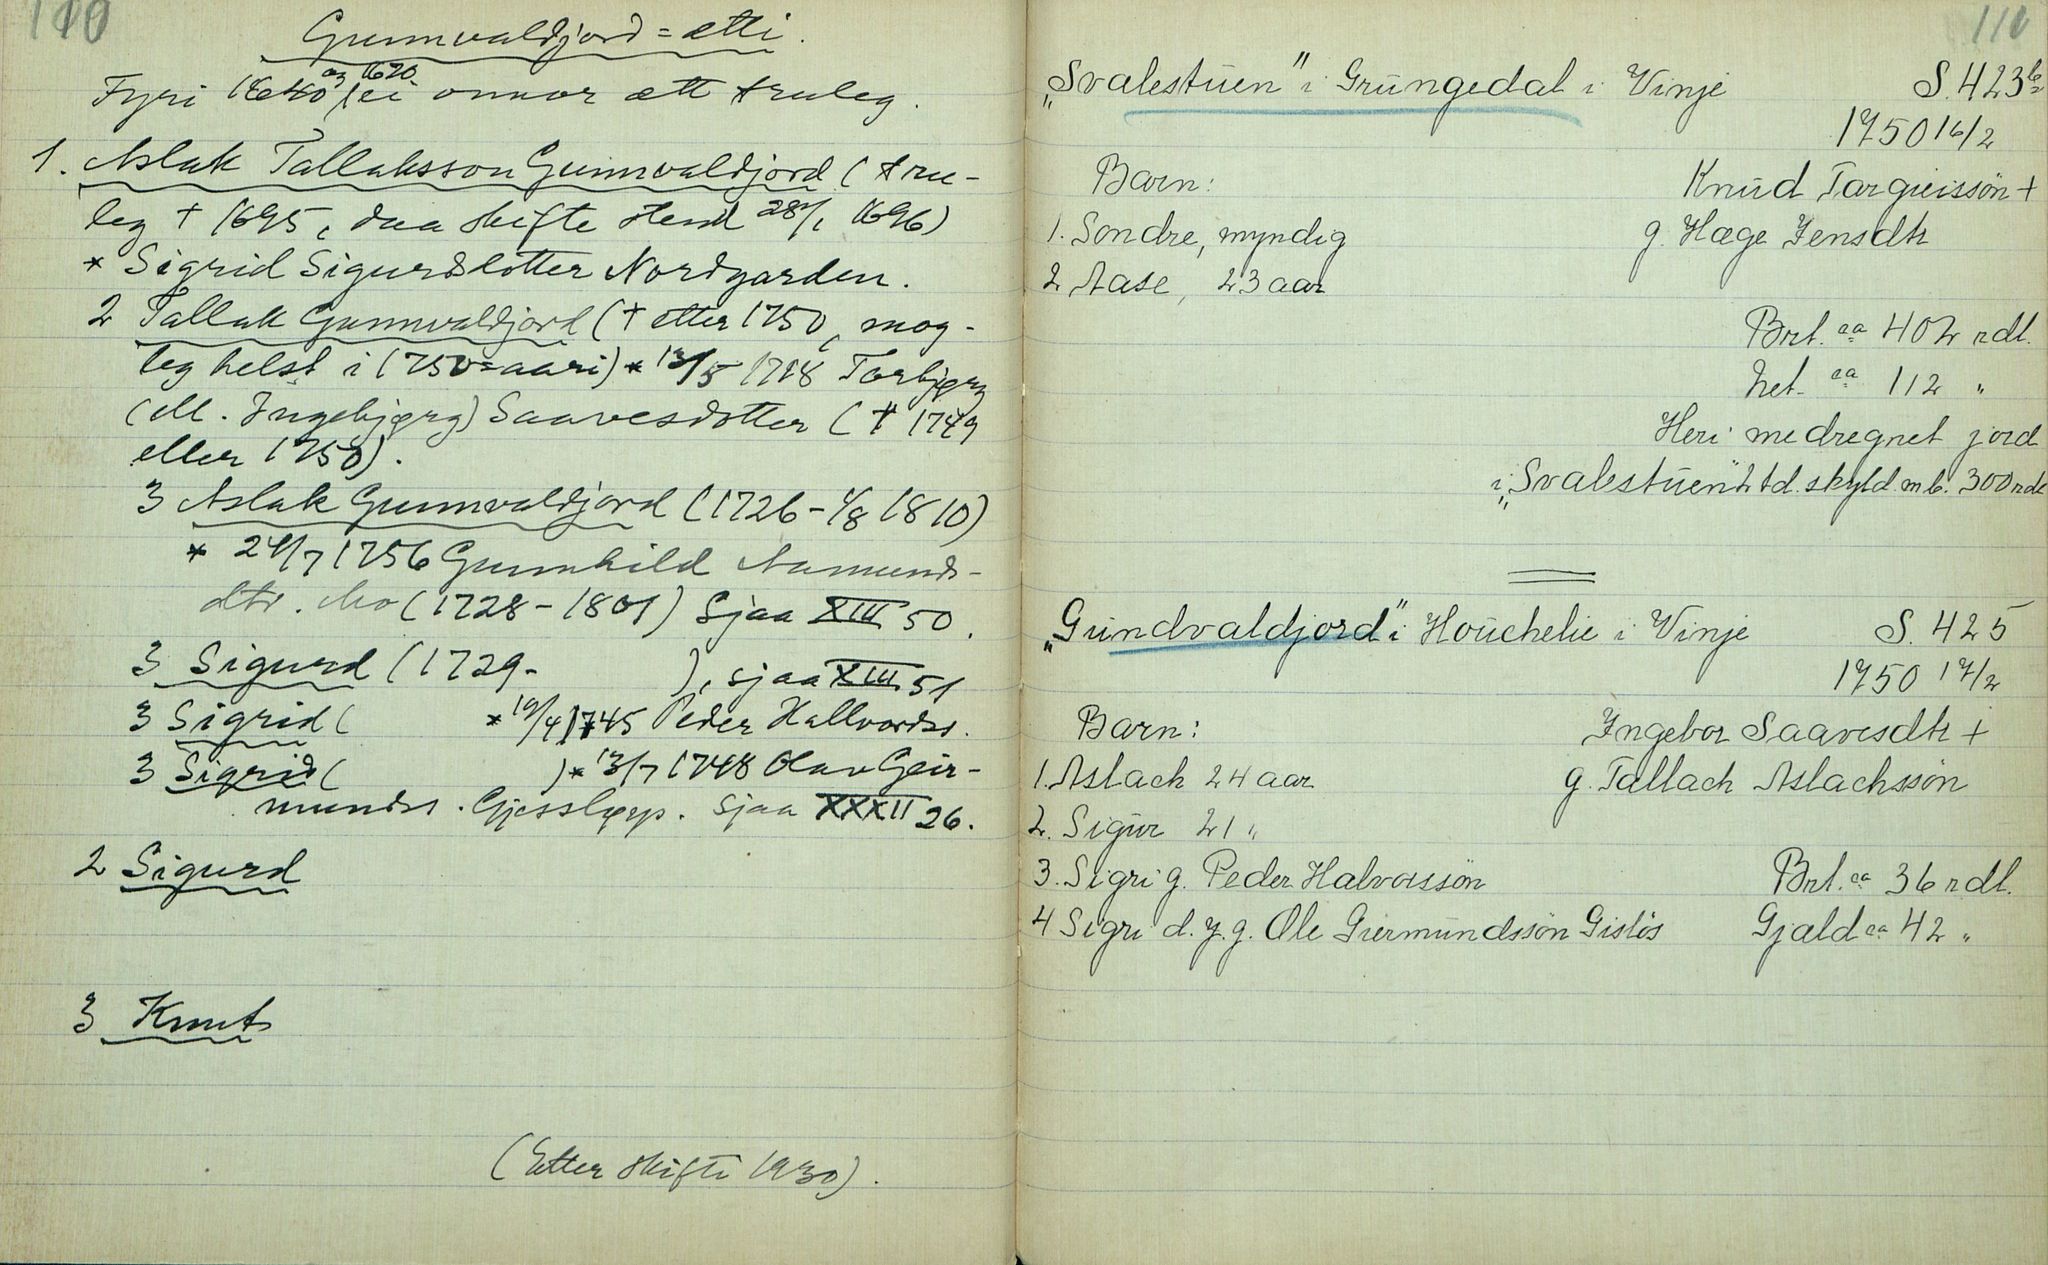 110
Gunnvaldjord=ætti.
og 1620
Fyri 1640 ei onnor ætt truleg.
1. Aslak Tallaksson Gunnvaldjord (tru-
leg † 1695, daa skifte stend 28/1 1696)
* Sigrid Sigurdsdotter Nordgarden.
2 Tallak Gunnvaldjord († etter 1750, mog-
leg helst i 1750=aari) * 13/5 1718 Torbjørg
(M. Ingebjørg) Saavesdotter († 1749
eller 1750).
3 Aslak Gunnvaldjord (1726 - 4/8 1810)
* 24/7 1756 Gunnhild Aamunds-
dtr. Mo (1728 - 1801) Sjaa XIII 50.
3 Sigurd (1729- ), sjaa XIII 51
3 Sigrid ( * 19/4 1745 Peder Hallvordss.
3 Sigrid ( ) * 13/7 1748 Olav Geir-
mundss. Gjessløyp. Sjaa XXXII 26.
2 Sigurd
3 Knut
(Etter skifti 1930).
111
„Svalestuen" i Grungedal i Vinje S. 423b
1750 16/2
Barn: Knud Targieissön +
1. Sondre, myndig g. Hæge Jensdtr
2 Aase, 23 aar
Brt. ca 402 rdl.
Net. ca 112 "
Heri medregnet jord
i „Svalestuen" 2 td. skyld m b. 300 rdl
„Gundvaldjord" i Houchelie i Vinje S. 425
1750 17/2
Barn: Ingebor Saavesdtr +
1. Aslach 24 aar g. Tallach Aslachssön
2. Sigur 21 "
3. Sigri g. Peder Halvorssön Brt. ca 36 rdl.
4 Sigri d. y. g. Ole Giermundssön Gislös Gjæld ca 42 "